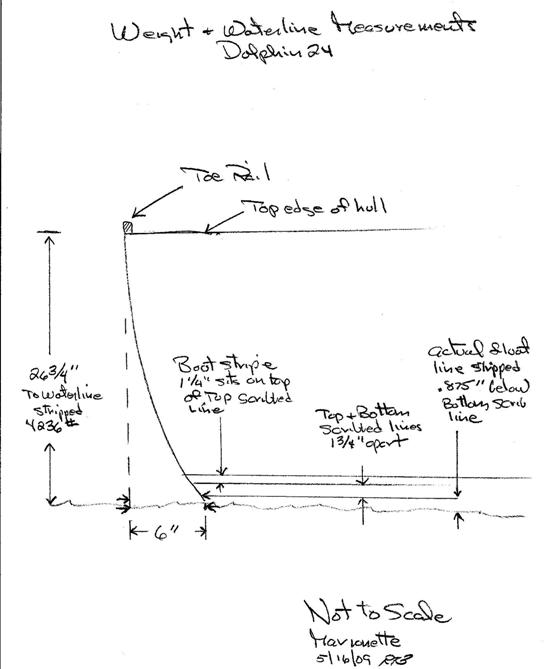 Weight + Waterline Measurements
Dolphin 24
Toe Rail
Top edge of hull
26 3/4"
To waterline
stripped
4236 #
Boot stripe
1 1/4" sits on top
of Top scribed
Line
Top + Bottom
Scribed lines
1 3/4" apart
actual float
line stripped
.875" below
Bottom scrib
line
6"
Not to Scale
Marionette
5/16/09